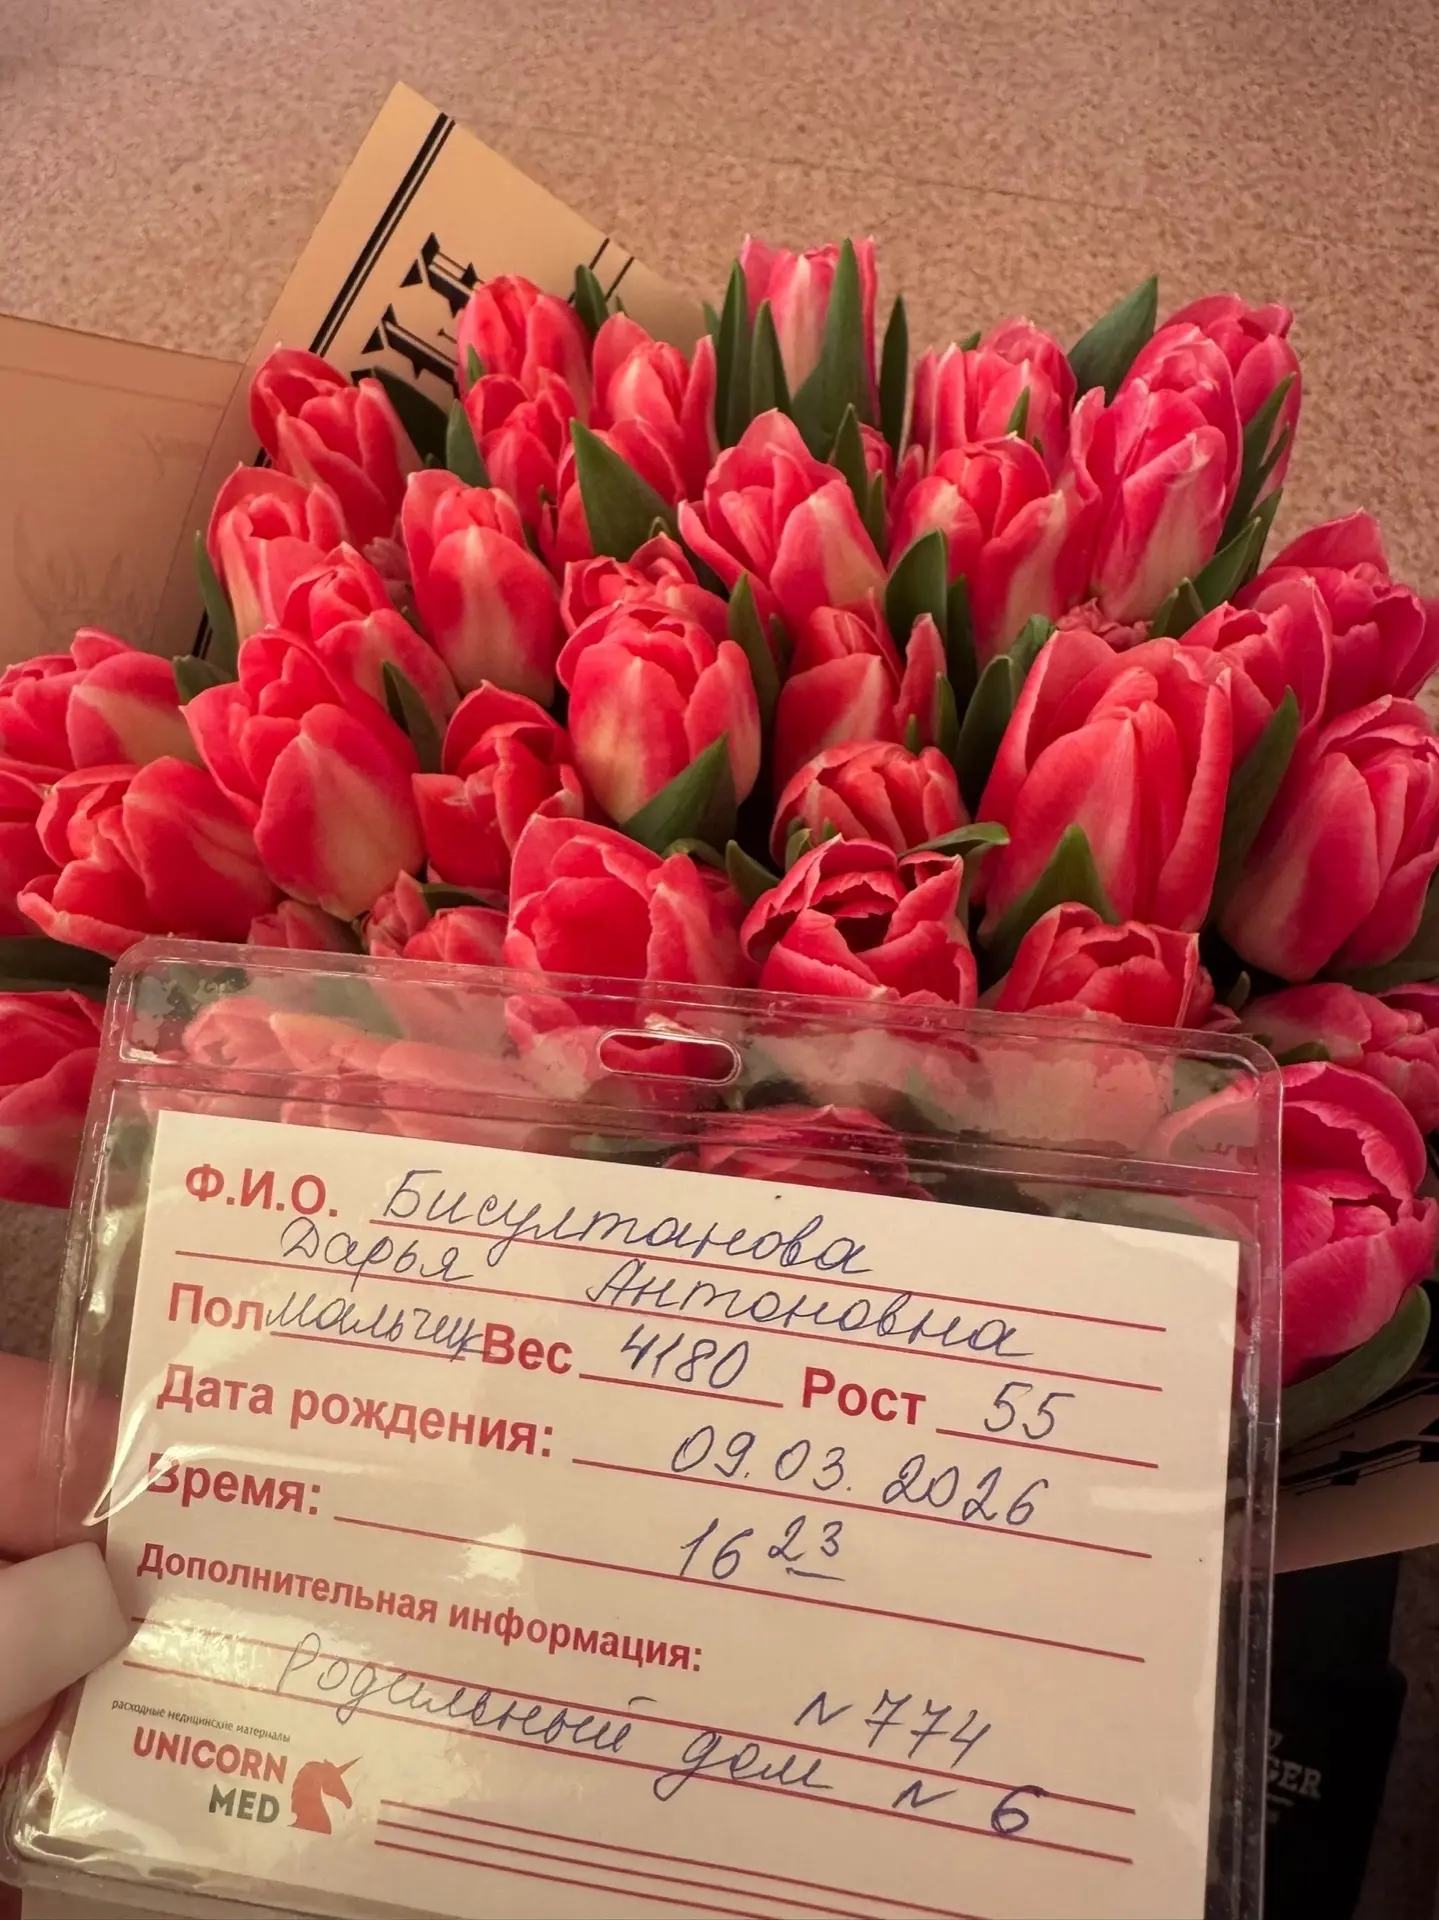 Ф.И.О. Бисултанова
Дарья Антоновна
Пол мальчик Вес 4180 Рост 55
Дата рождения: 09.03.2026
Время: 16 23
Дополнительная информация:
N 774
Родильный дом N 6
расходные медицинские материалы
UNICORN
MED